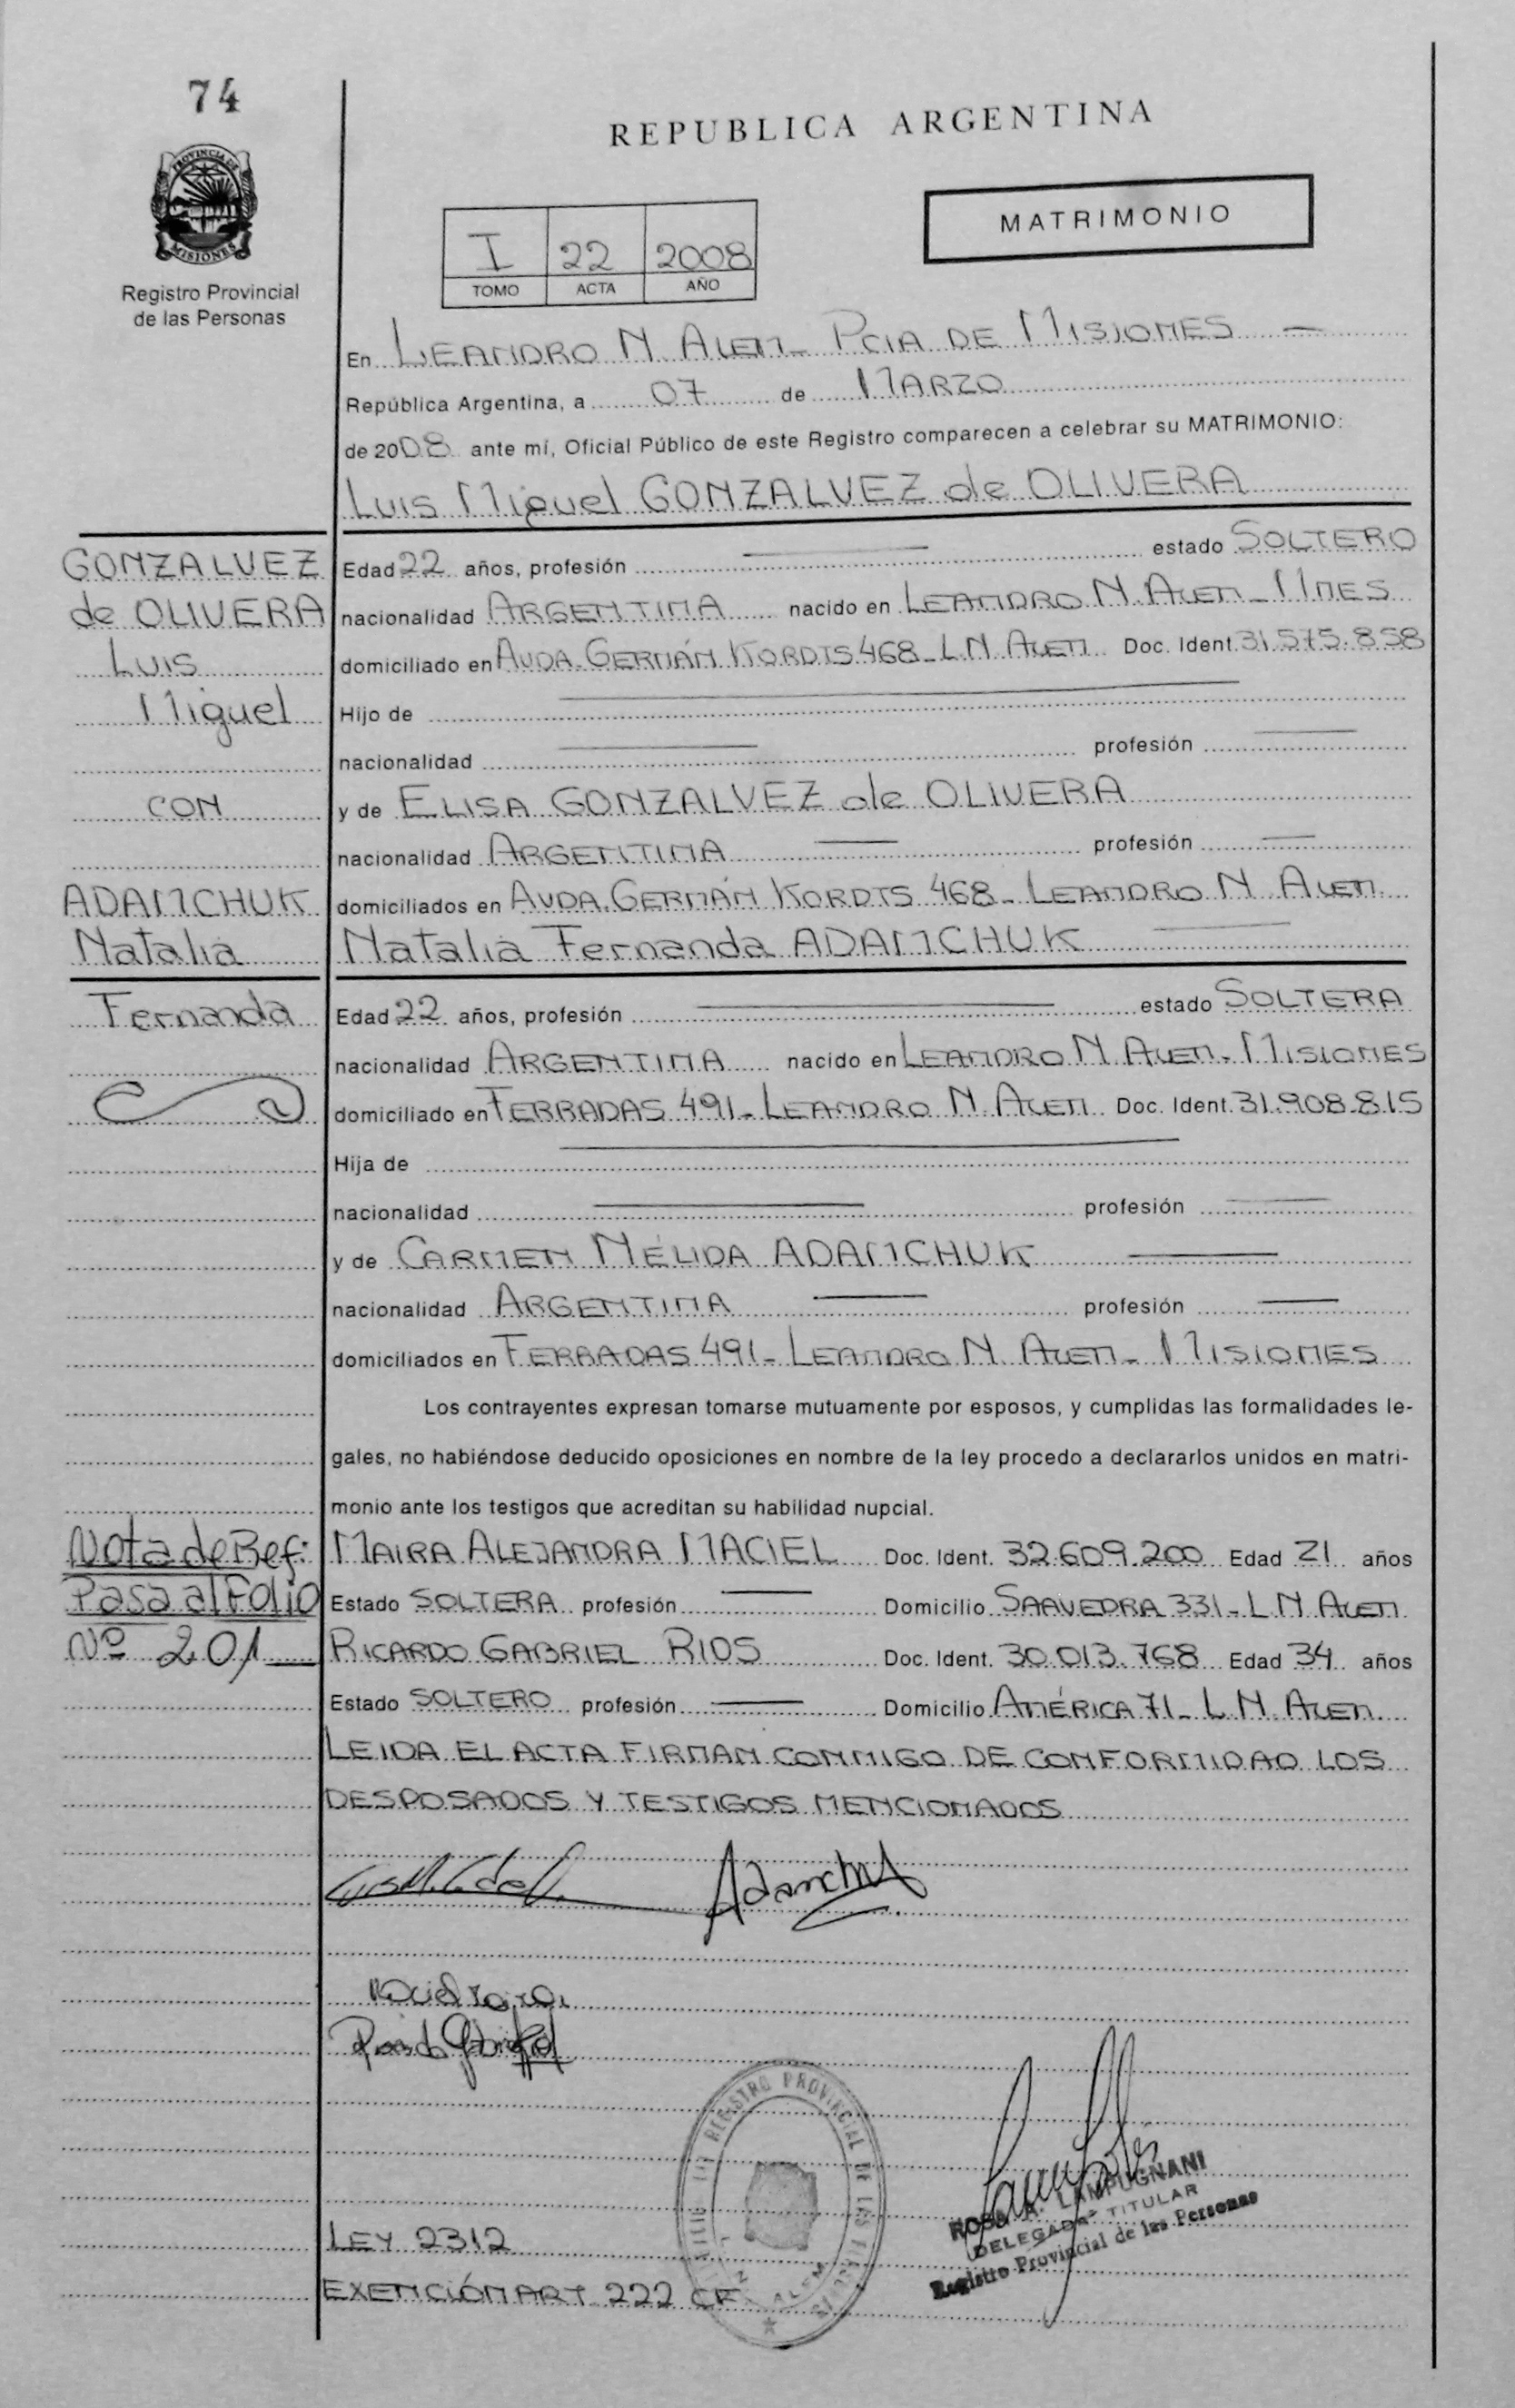 74
REPUBLICA ARGENTINA
PROVINCIA DE
MISIONES
Registro Provincial
de las Personas
MATRIMONIO
I 22 2008
TOMO ACTA AÑO
En LEANDRO N ALEM - PCIA DE MISIONES
República Argentina, a 07 de MARZO
de 2008 ante mí, Oficial Público de este Registro comparecen a celebrar su MATRIMONIO:
Luis Miguel GONZALVEZ de OLIVERA
GONZALVEZ
de OLIVERA
LUIS
Miguel
CON
ADAMCHUK
Natalia
Fernanda
Edad 22 años, profesión estado SOLTERO
nacionalidad ARGENTINA nacido en LEANDRO N ALEM - MNES
domiciliado en AVDA. GERMÁN KORDTS 468 - L N ALEM Doc. Ident. 31.575.858
Hijo de
nacionalidad profesión
y de ELISA GONZALVEZ de OLIVERA
nacionalidad ARGENTINA profesión
domiciliados en AVDA. GERMÁN KORDTS 468 - LEANDRO N ALEM
Natalia Fernanda ADAMCHUK
Edad 22 años, profesión estado SOLTERA
nacionalidad ARGENTINA nacido en LEANDRO N ALEM - MISIONES
domiciliado en TERRADAS 491 - LEANDRO N. ALEM Doc. Ident. 31.908.815
Hija de
nacionalidad profesión
y de CARMEN NÉLIDA ADAMCHUK
nacionalidad ARGENTINA profesión
domiciliados en TERRADAS 491 - LEANDRO N. ALEM - MISIONES
Los contrayentes expresan tomarse mutuamente por esposos, y cumplidas las formalidades le-
gales, no habiéndose deducido oposiciones en nombre de la ley procedo a declararlos unidos en matri-
monio ante los testigos que acreditan su habilidad nupcial.
Nota de Ref:
Pasa al Folio
Nº 201
MAIRA ALEJANDRA MACIEL Doc. Ident. 32.609.200 Edad 21 años
Estado SOLTERA profesión Domicilio SAAVEDRA 331 - L N ALEM
RICARDO GABRIEL RIOS Doc. Ident. 30.013.768 Edad 34 años
Estado SOLTERO profesión Domicilio AMÉRICA 71 - L N. ALEM
LEIDA EL ACTA FIRMAN CONMIGO DE CONFORMIDAD LOS
DESPOSADOS Y TESTIGOS MENCIONADOS
REGISTRO PROVINCIAL DE LAS
ALEM
ROSA A. LAMPUGNANI
DELEGADA TITULAR
Registro Provincial de las Personas
LEY 2312
EXENCIÓN ART 222 CF